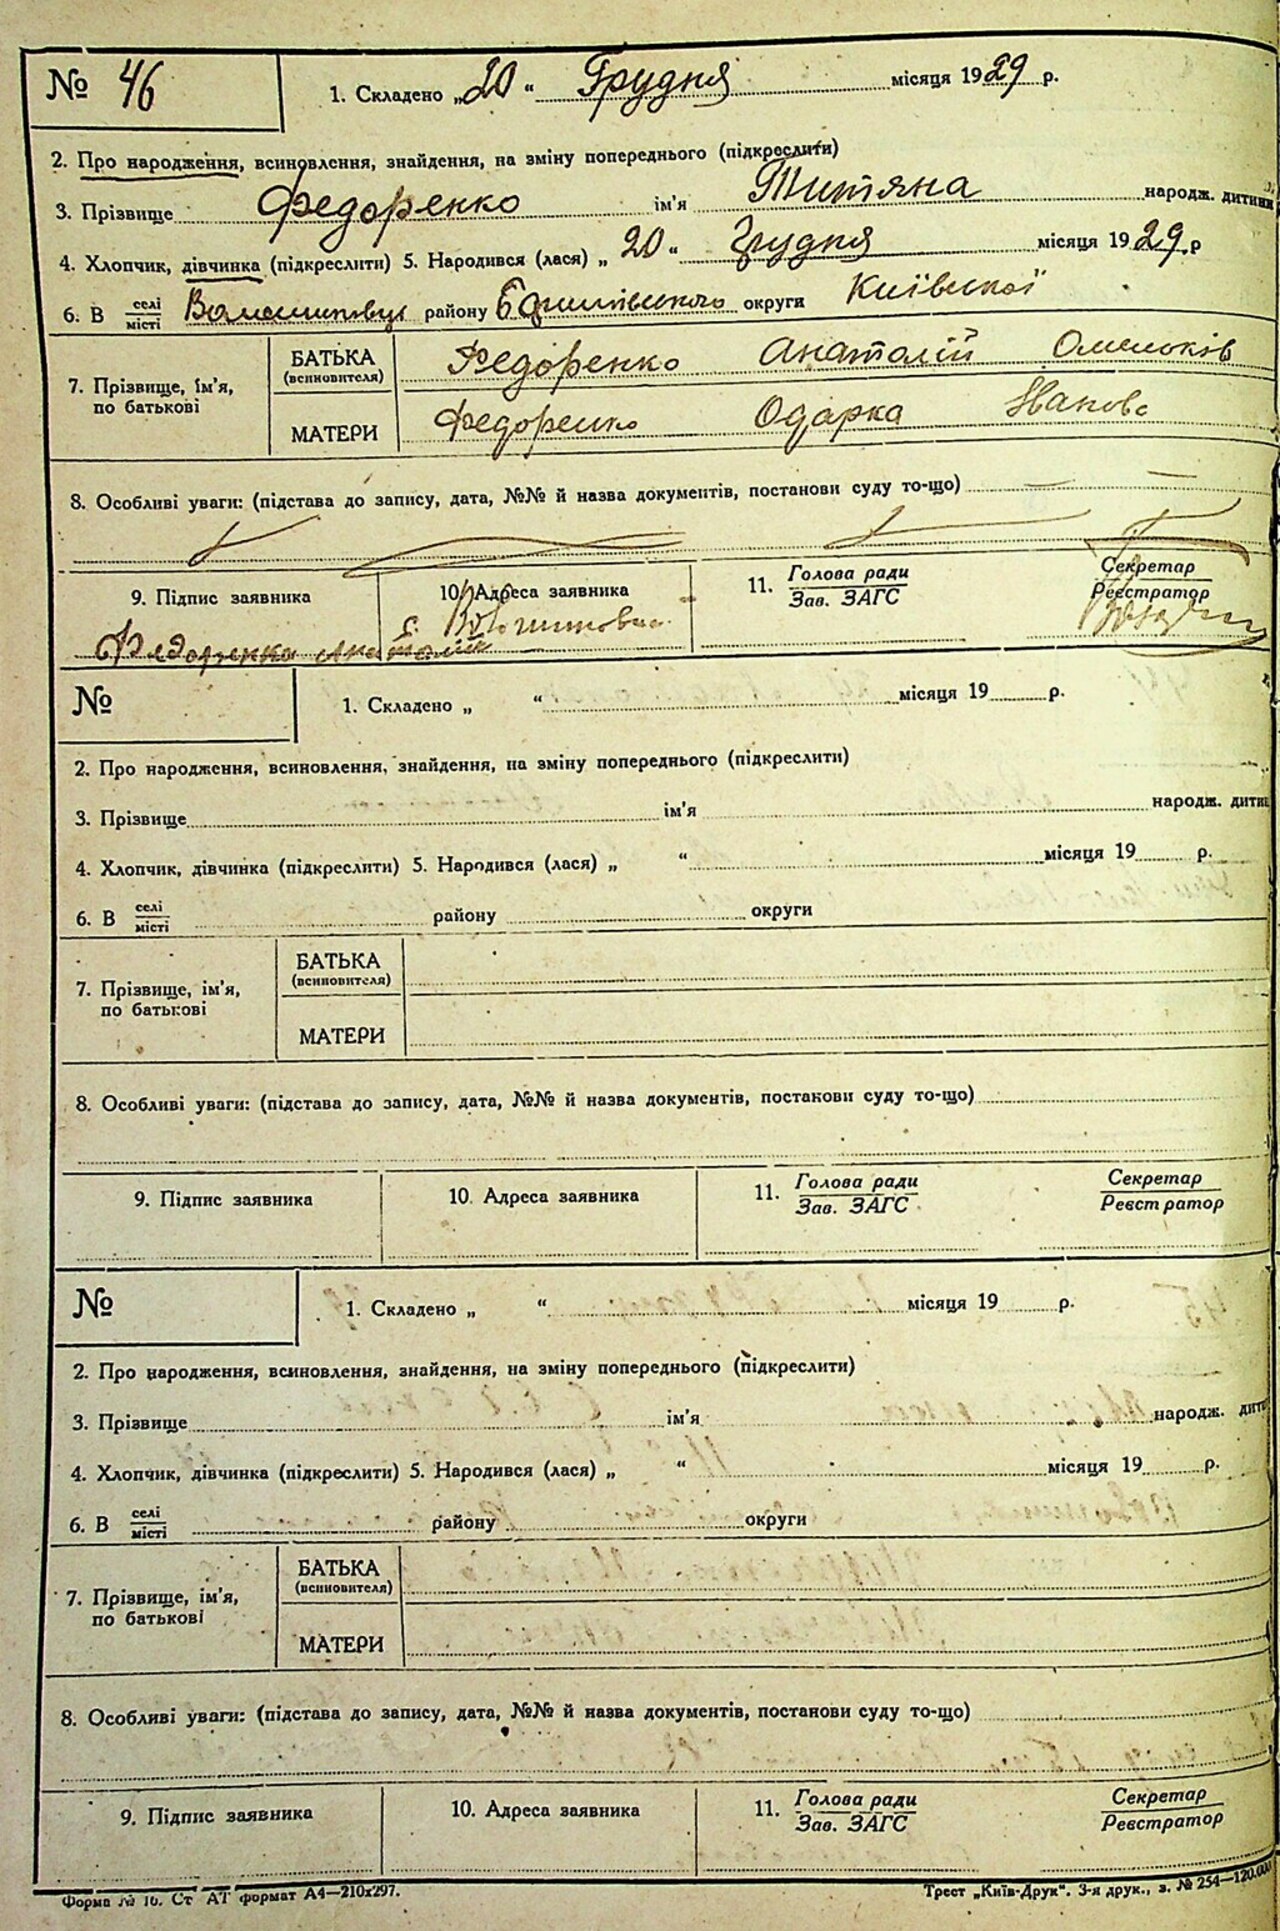 № 46
1. Складено „20“ Грудня місяця 1929 р.
2. Про народження, всиновлення, знайдення, на зміну попереднього (підкреслити)
3. Прізвище Федоренко ім'я Титяна народж. дитини
4. Хлопчик, дівчинка (підкреслити) 5. Народився (лася) „20“ Грудня місяця 1929 р
6. В селі місті району округи Київської
7. Прізвище, ім'я, по батькові
БАТЬКА (всиновителя) Федоренко Анатолій
МАТЕРИ Федоренко Одарка
8. Особливі уваги: (підстава до запису, дата, №№ й назва документів, постанови суду то-що)
9. Підпис заявника
10. Адреса заявника
11. Голова ради
Зав. ЗАГС
Секретар
Реєстратор
Федоренко Анатолій
с.
№
1. Складено „ “ місяця 19 р.
2. Про народження, всиновлення, знайдення, на зміну попереднього (підкреслити)
3. Прізвище ім'я народж. дитин
4. Хлопчик, дівчинка (підкреслити) 5. Народився (лася) „ “ місяця 19 р.
6. В селі місті району округи
7. Прізвище, ім'я, по батькові
БАТЬКА (всиновителя)
МАТЕРИ
8. Особливі уваги: (підстава до запису, дата, №№ й назва документів, постанови суду то-що)
9. Підпис заявника
10. Адреса заявника
11. Голова ради
Зав. ЗАГС
Секретар
Реєстратор
№
1. Складено „ “ місяця 19 р.
2. Про народження, всиновлення, знайдення, на зміну попереднього (підкреслити)
3. Прізвище ім'я народж. дити
4. Хлопчик, дівчинка (підкреслити) 5. Народився (лася) „ “ місяця 19 р.
6. В селі місті району округи
7. Прізвище, ім'я, по батькові
БАТЬКА (всиновителя)
МАТЕРИ
8. Особливі уваги: (підстава до запису, дата, №№ й назва документів, постанови суду то-що)
9. Підпис заявника
10. Адреса заявника
11. Голова ради
Зав. ЗАГС
Секретар
Реєстратор
Форма № 16. Ст АТ формат А4—210х297.
Трест „Київ-Друк“. 3-я друк., з. № 254—120.000